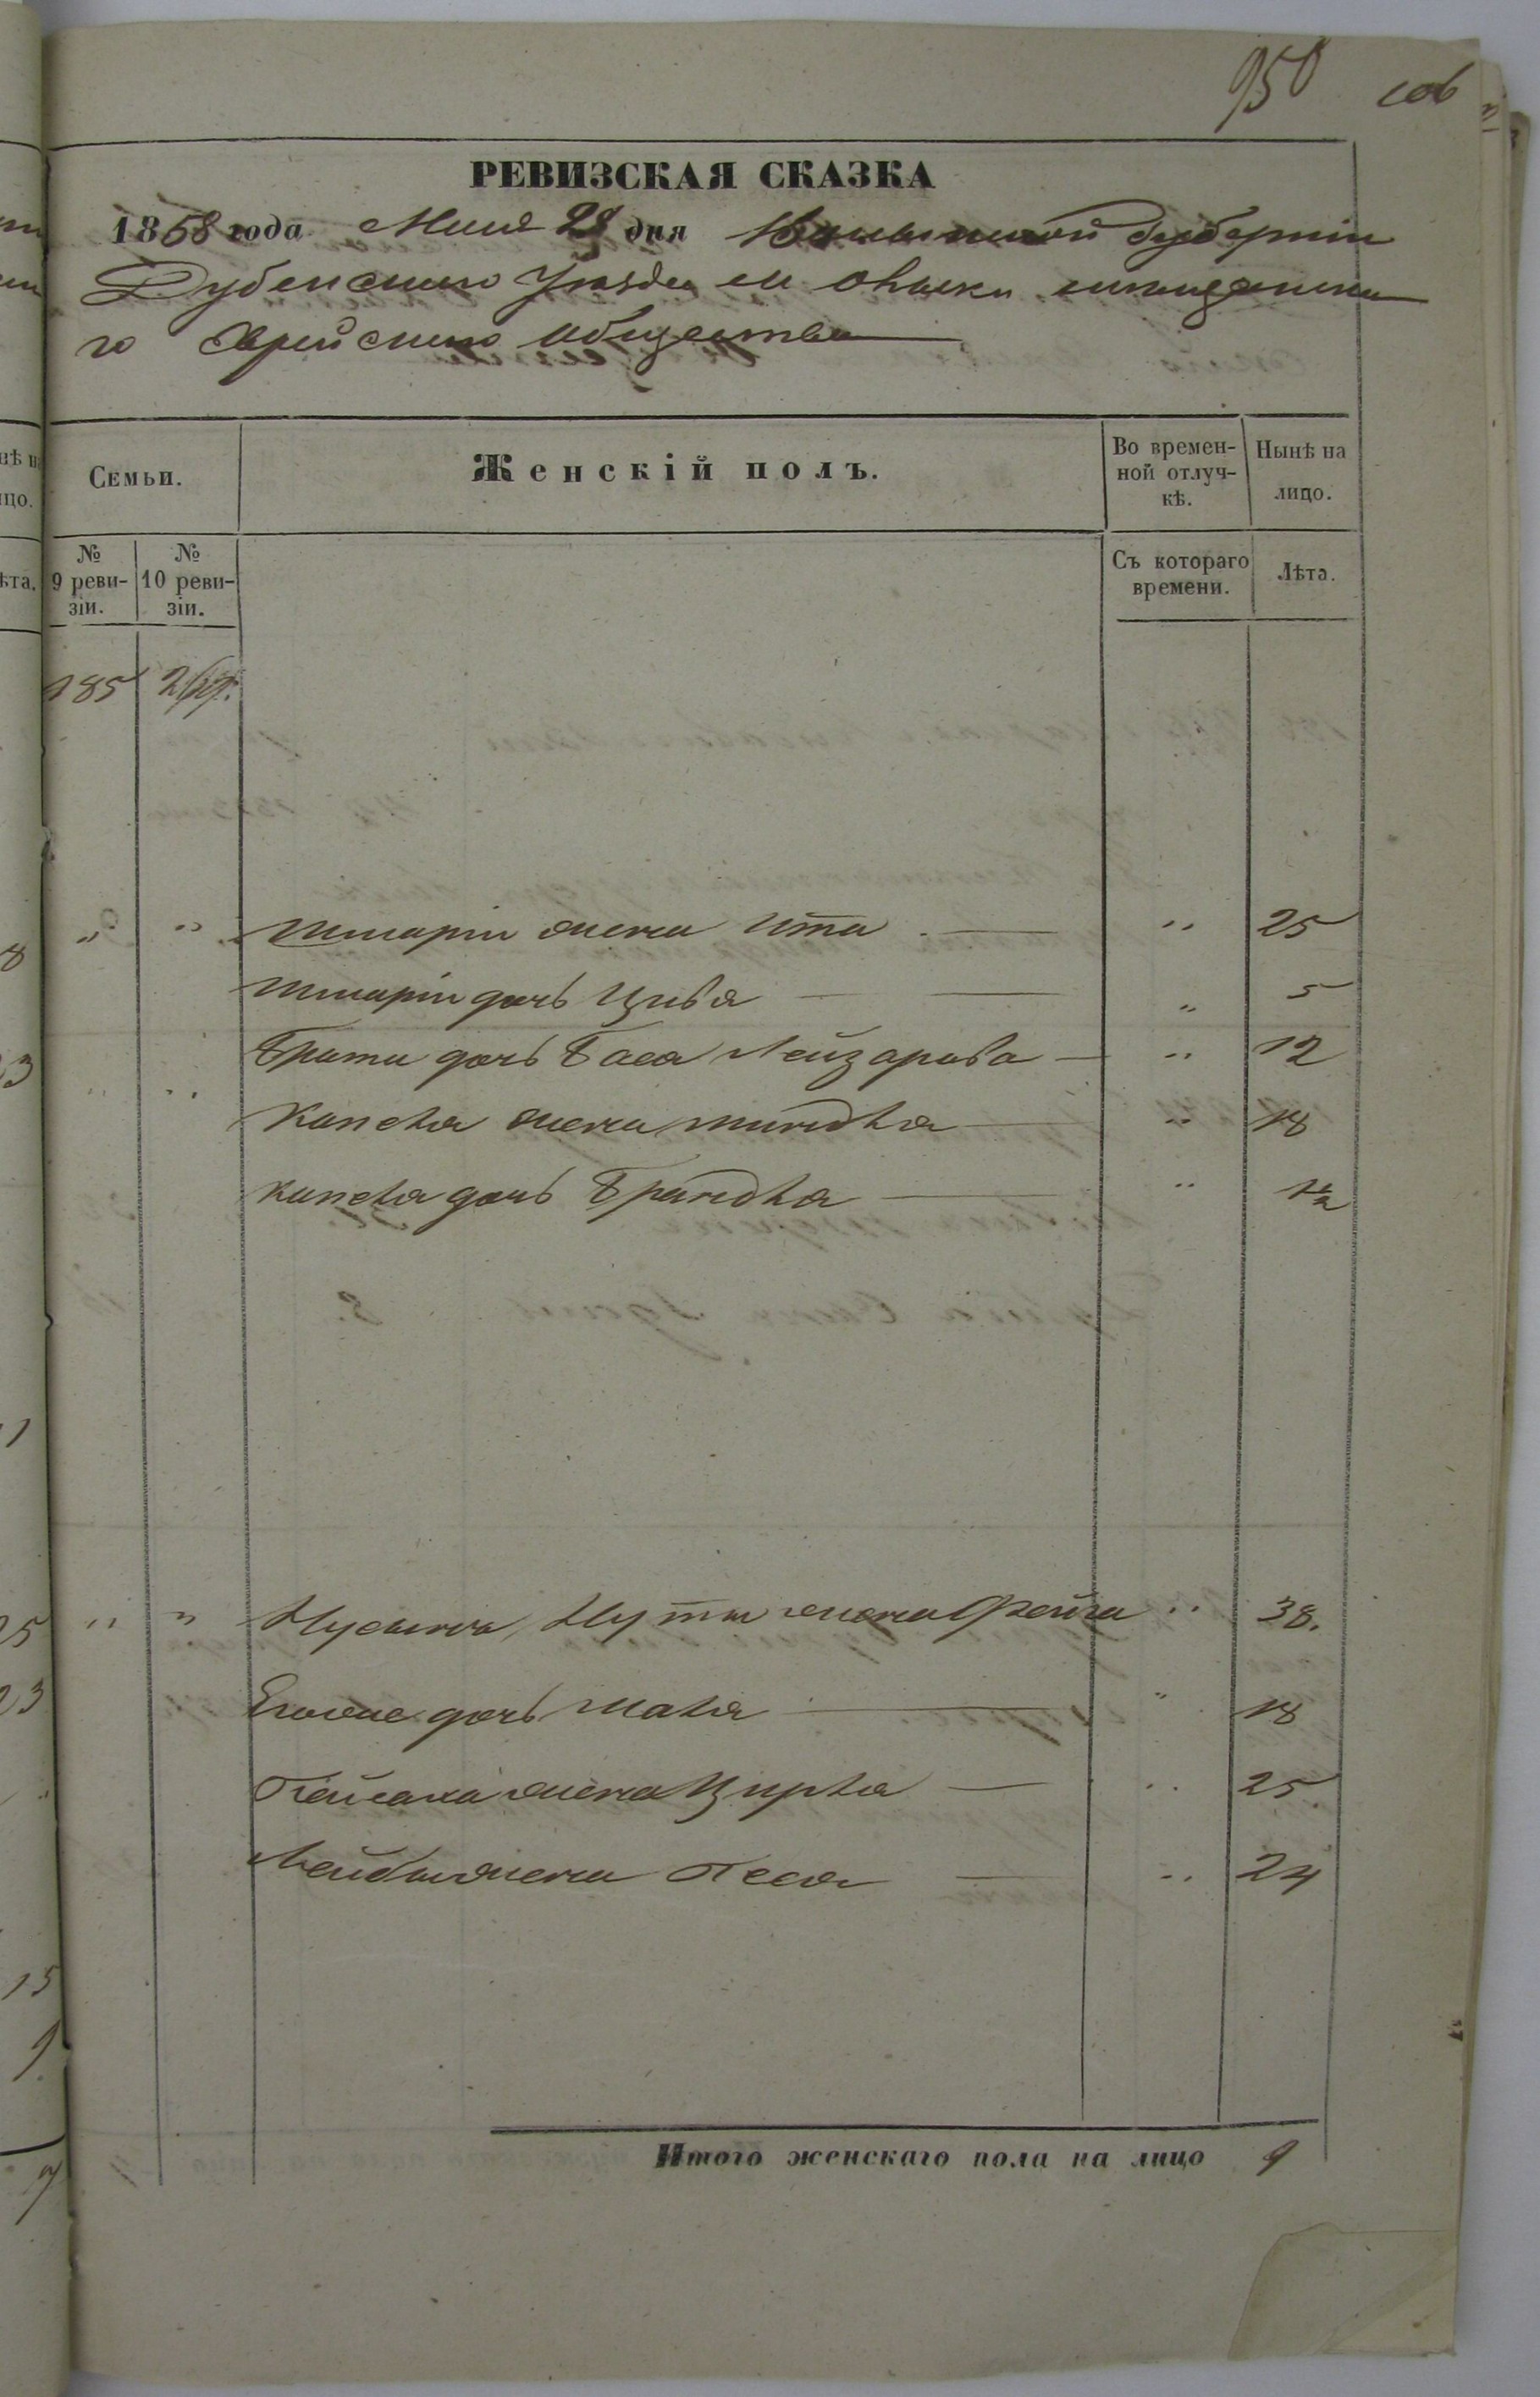 950
РЕВИЗСКАЯ СКАЗКА
1858 года Мая 28 дня Волынской Губерніи
Дубенскаго Уезда м Олыки мещанска
го Еврейскаго общества
Семьи. Женскій полъ. Во времен-ной отлуч-кѣ. Нынѣ на лицо.
№ 9 реви-зіи. № 10 реви-зіи. Съ котораго времени. Лѣта.
185
Шмарiи жена Ита 25
Шмарiи дочь Цивя 5
Брата дочь Бася Лейзарова 12
жена 18
дочь Брандля 1/2
Нусина, Нуты жена Фейга 38.
дочь 18
Пейсаха жена Цирля 25
Лейбы жена Песя 24
Итого женскаго пола на лицо 9